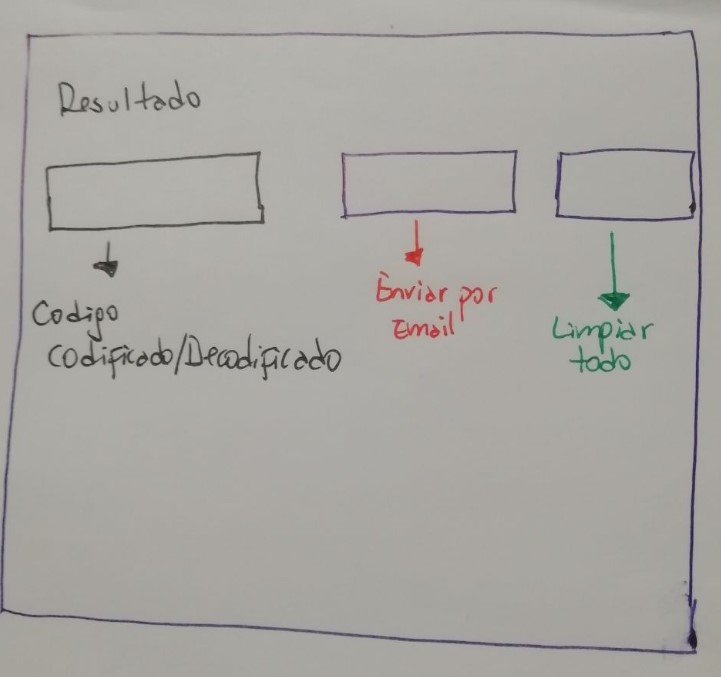 Resultado
Codigo
Codificado/Decodificado
Enviar por
Email
Limpiar
todo